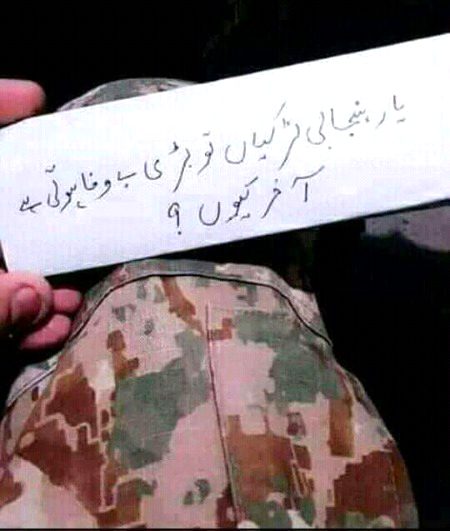 یار پنجابی لڑکیاں تو بڑی بے وفا ہوتی ہے
آخر کیوں ؟